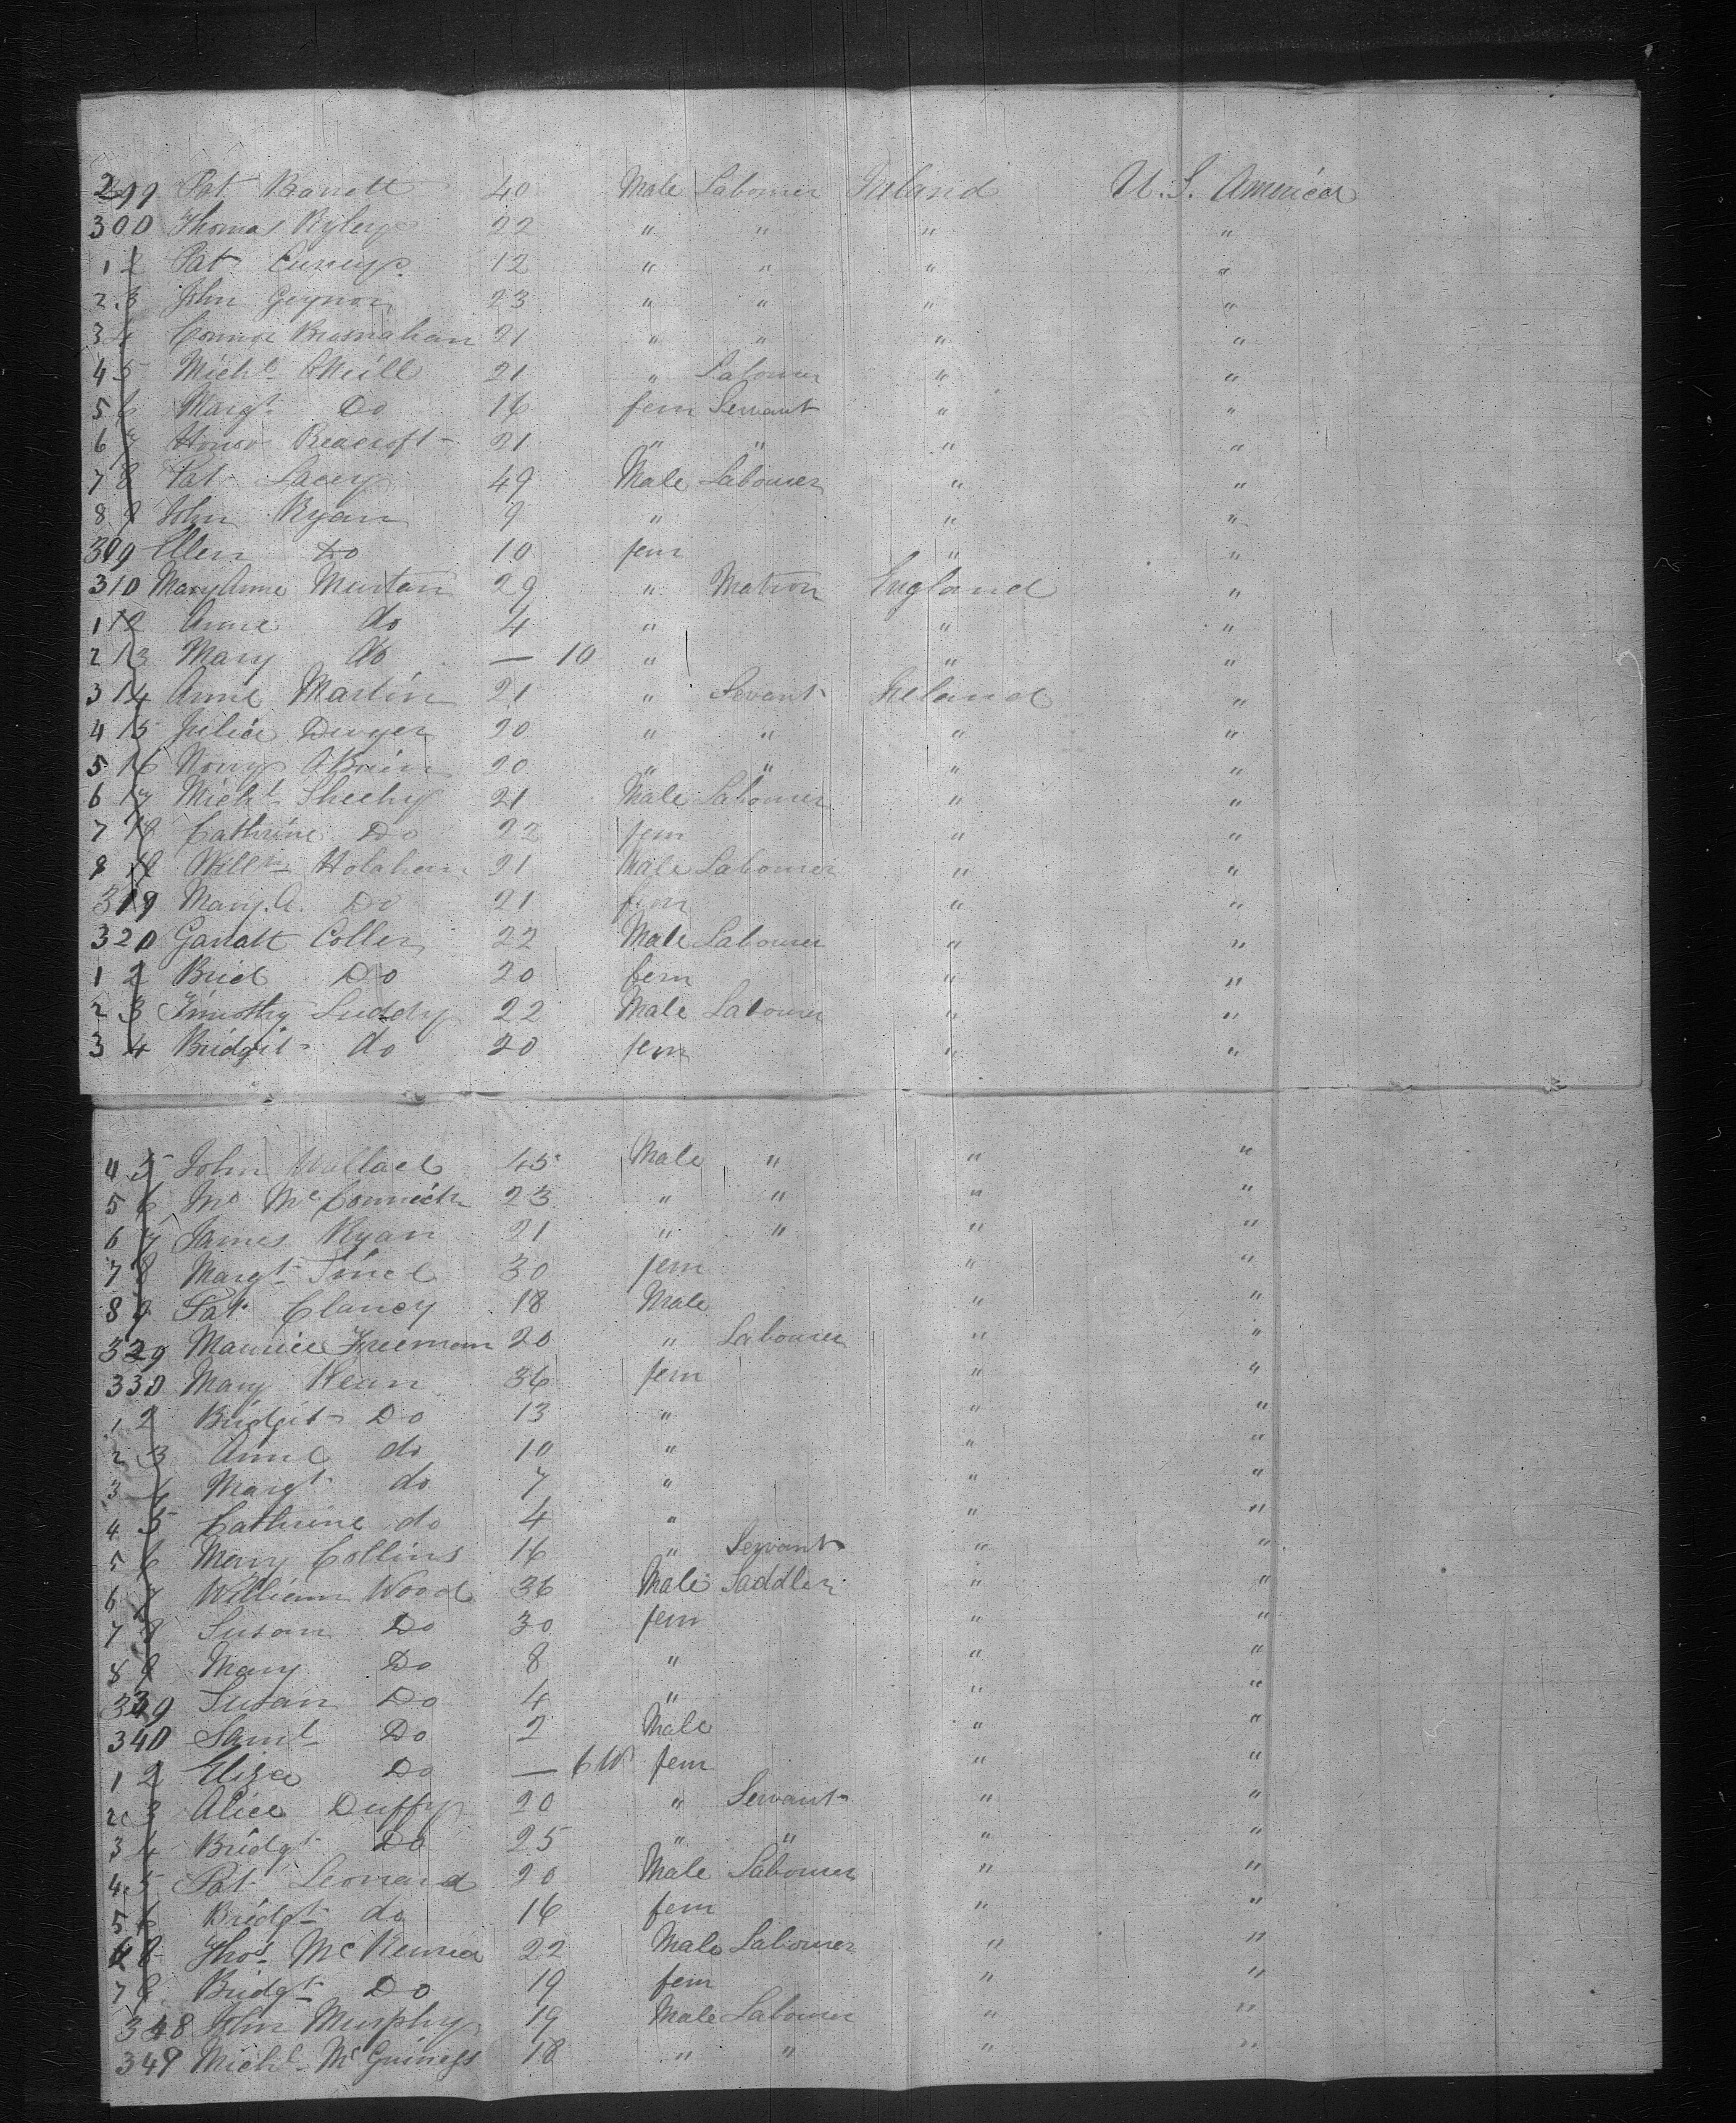 299 Pat Barrett 40 Male Labourer Ireland U.S. America
300 Thomas Ryley 22 " " " "
1 2 Pat 12 " " " "
2 3 John Geynor 23 " " " "
3 4 Connor Brosnahan 21 " " " "
4 5 Michl ONeill 21 " Labourer " "
5 6 Margt Do 16 fem Servant " "
6 7 Honor Reacroft 21 " " " "
7 8 Pat Lacey 49 Male Labourer " "
8 9 John Ryan 9 " " "
309 Ellen Do 10 fem " "
310 Mary Anne Murtan 29 " Matron England "
1 12 Anne do 4 " " "
2 13 Mary do — 10 " " "
3 14 Anne Martin 21 " Sevant Ireland "
4 15 Julia Dwyer 20 " " " "
5 16 Nony OBrien 20 " " " "
6 17 Michl Sheehy 21 Male Labourer " "
7 18 Cathrine Do 22 fem " "
8 19 Willm Holahan 21 Male Labourer " "
319 Mary.A. Do 21 fem " "
320 Garratt Coller 22 Male Labourer " "
1 2 Brid Do 20 fem " "
2 3 Timothy Luddy 22 Male Labourer " "
3 4 Bridgit do 20 fem " "
4 5 John Wallace 45 Male " " "
5 6 Mc 23 " " " "
6 7 James Ryan 21 " " " "
7 8 Margt 30 fem " "
8 9 Pat Clancy 18 Male " "
329 Maurice Freeman 20 " Labourer " "
330 Mary Kean 36 fem " "
1 2 Bridgit Do 13 " " "
2 3 Anne do 10 " " "
3 4 Margt do 7 " " "
4 5 Cathrine do 4 " " "
5 6 Mary Collins 16 " Servant " "
6 7 William Wood 36 Male Saddler " "
7 8 Susan Do 30 fem " "
8 9 Mary Do 8 " " "
339 Susan Do 4 " " "
340 Saml Do 2 Male " "
1 2 Eliza Do — 6 W fem " "
2 3 Alice Duffy 20 " Servant " "
3 4 Bridgt Do 25 " " " "
4 5 Pat Leonard 20 Male Labourer " "
5 6 Bridgt do 16 fem " "
6 8 Thos McKenna 22 Male Labourer " "
7 9 Bridgt Do 19 fem " "
348 John Murphy 19 Male Labourer " "
349 Michl McGuiness 18 " " " "